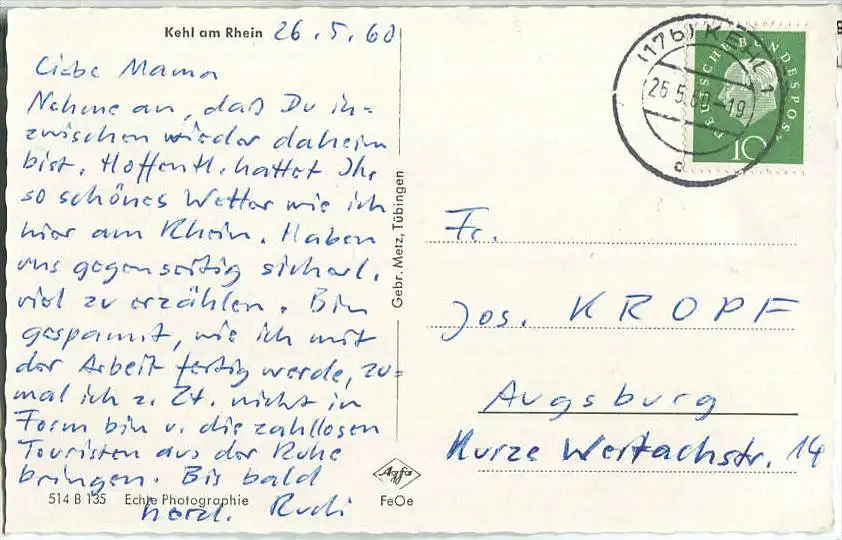 Kehl am Rhein 26.5.60
Liebe Mama
Nehme an, daß Du in=
zwischen wieder daheim
bist. Hoffentl. hattet Ihr
so schönes Wetter wie ich
hier am Rhein. Haben
uns gegenseitig sicherl.
viel zu erzählen. Bin
gespannt, wie ich mit
der Arbeit fertig werde, zu=
mal ich z. Zt. nicht in
Form bin u. die zahllosen
Touristen aus der Ruhe
bringen. Bis bald
herzl. Rudi
514 B 135 Echte Photographie
Gebr. Metz, Tübingen
Agfa
FeOe
(17b) KEHL 1
26.5.60-19
a
DEUTSCHE BUNDESPOST
10
Fr.
Jos. KROPF
Augsburg
Kurze Wertachstr. 14